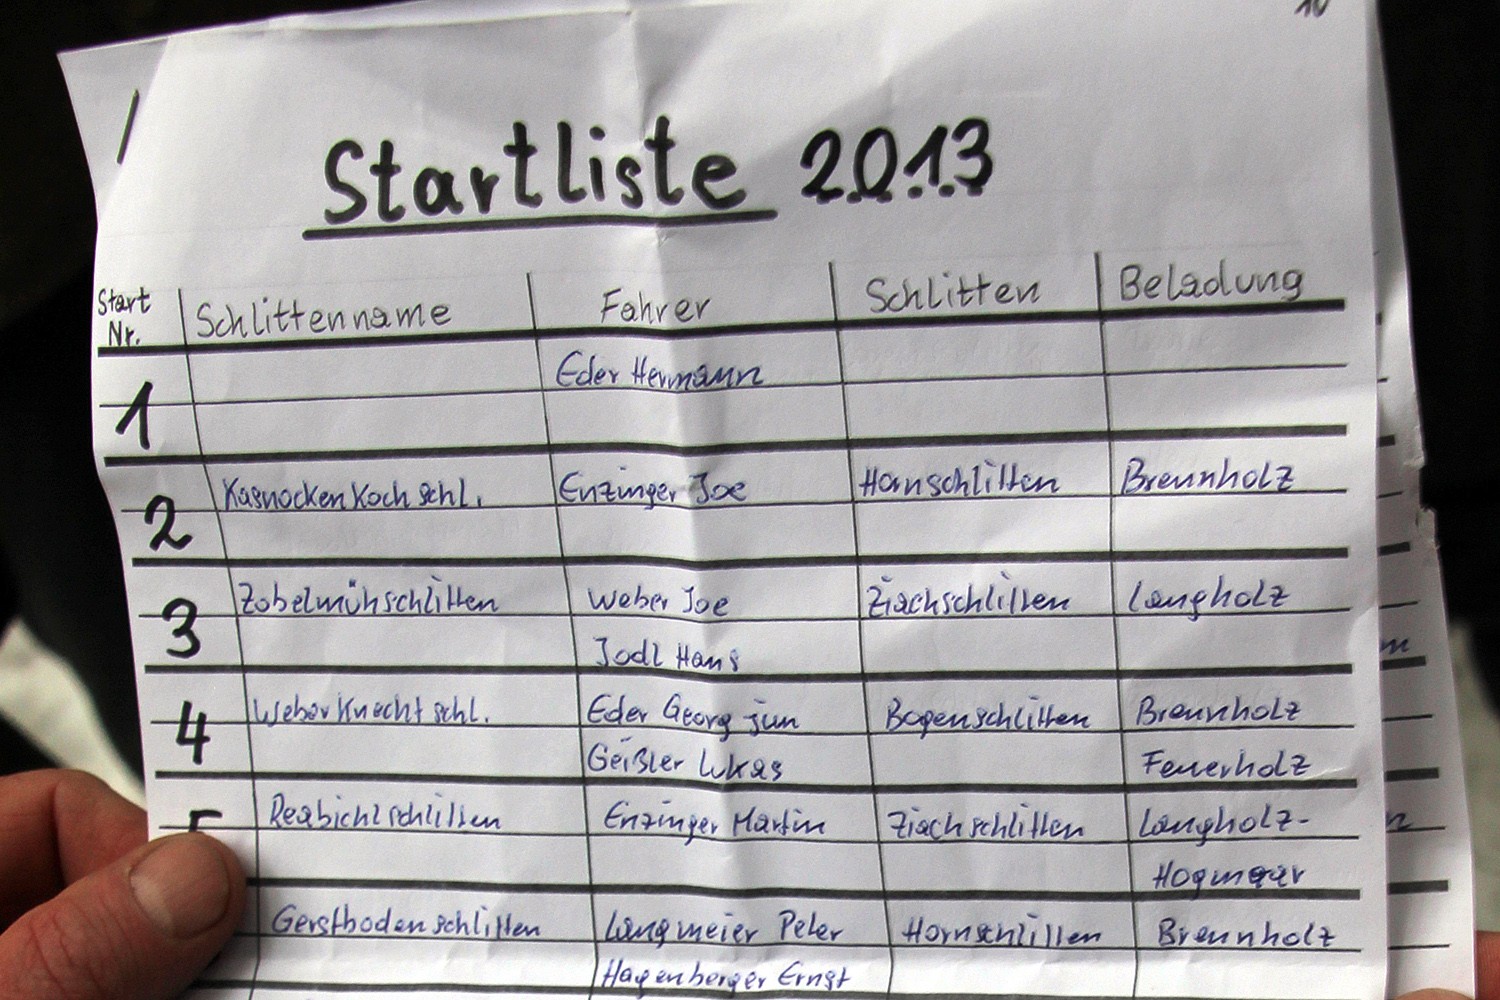 Startliste 2013
Start Nr. Schlittenname Fahrer Schlitten Beladung
1 Eder Hermann
2 Kasnocken Koch schl. Enzinger Joe Hornschlitten Brennholz
3 Zobelmühschlitten Weber Joe Ziachschlitten Langholz
Jodl Hans
4 Weber Knecht schl. Eder Georg jun Bogenschlitten Brennholz
Geißler Lukas Feuerholz
5 Reabichlschlitten Enzinger Martin Ziachschlitten Langholz-
Gerstbodenschlitten Langmeier Peter Hornschlitten Brennholz
Hagenberger Ernst